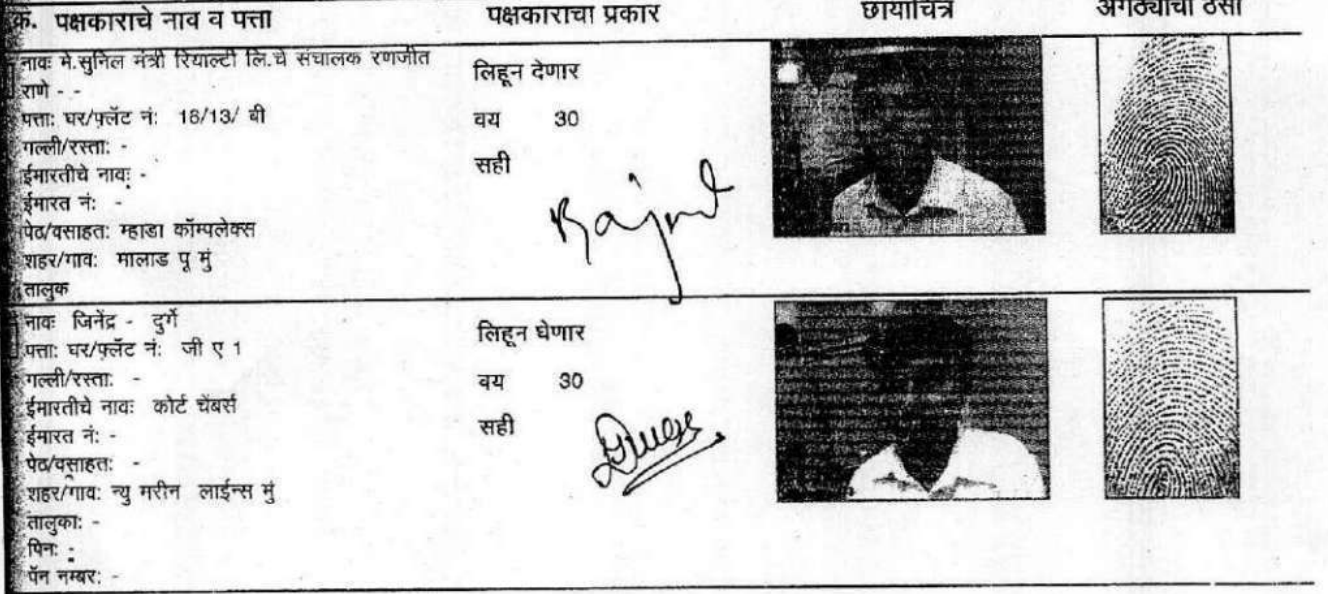 क्र. पक्षकाराचे नाव व पत्ता पक्षकाराचा प्रकार छायाचित्र अंगठ्याचा ठसा
नावः मे.सुनिल मंत्री रियाल्टी लि.चे संचालक रणजीत
राणे - -
पत्ताः घर/फ्लॅट नंः 18/13/ बी
गल्ली/रस्ताः -
ईमारतीचे नावः -
ईमारत नंः -
पेठ/वसाहतः म्हाडा कॉम्पलेक्स
शहर/गावः मालाड पू मुं
तालुक
लिहून देणार
वय 30
सही
नावः जिनेंद्र - दुर्गे
पत्ताः घर/फ्लॅट नंः जी ए 1
गल्ली/रस्ताः -
ईमारतीचे नावः कोर्ट चेंबर्स
ईमारत नंः -
पेठ/वसाहतः -
शहर/गावः न्यु मरीन लाईन्स मुं
तालुकाः -
पिनः -
पॅन नम्बरः -
लिहून घेणार
वय 30
सही